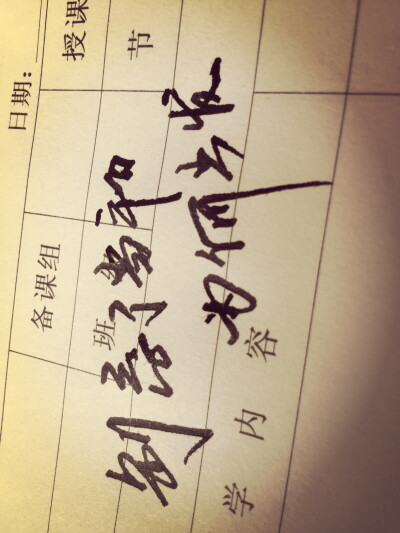 日期:
备课组 授课
班 节
别忘了当初
为何出发
学内容